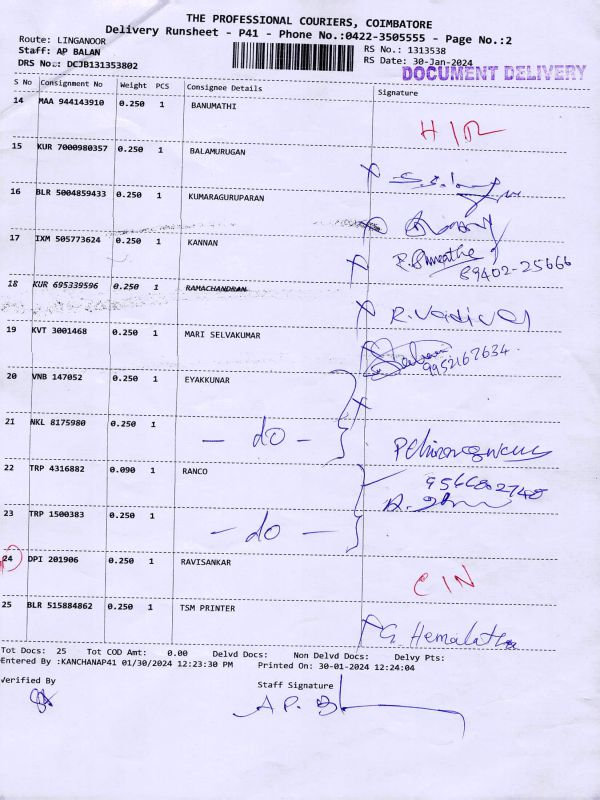 THE PROFESSIONAL COURIERS, COIMBATORE
Delivery Runsheet - P41 - Phone No.:0422-3505555 - Page No.:2
Route: LINGANOOR
RS No.: 1313538
Staff: AP BALAN
RS Date: 30-Jan-2024
DRS No.: DCJB131353802
DOCUMENT DELIVERY
S No Consignment No Weight PCS Consignee Details Signature
14 MAA 944143910 0.250 1 BANUMATHI
15 KUR 7000980357 0.250 1 BALAMURUGAN
16 BLR 5004859433 0.250 1 KUMARAGURUPARAN
17 IXM 505773624 0.250 1 KANNAN
89402-25666
18 KUR 695339596 0.250 1 RAMACHANDRAN
R. Vadivel
19 KVT 3001468 0.250 1 MARI SELVAKUMAR
9952167634
20 VNB 147052 0.250 1 EYAKKUNAR
21 NKL 8175980 0.250 1 - do -
22 TRP 4316882 0.090 1 RANCO
9566802748
23 TRP 1500383 0.250 1 - do -
24 DPI 201906 0.250 1 RAVISANKAR CIN
25 BLR 515884862 0.250 1 TSM PRINTER G. Hemalatha
Tot Docs: 25 Tot COD Amt: 0.00 Delvd Docs: Non Delvd Docs: Delvy Pts:
Entered By :KANCHANAP41 01/30/2024 12:23:30 PM Printed On: 30-01-2024 12:24:04
Verified By
Staff Signature
A P. B